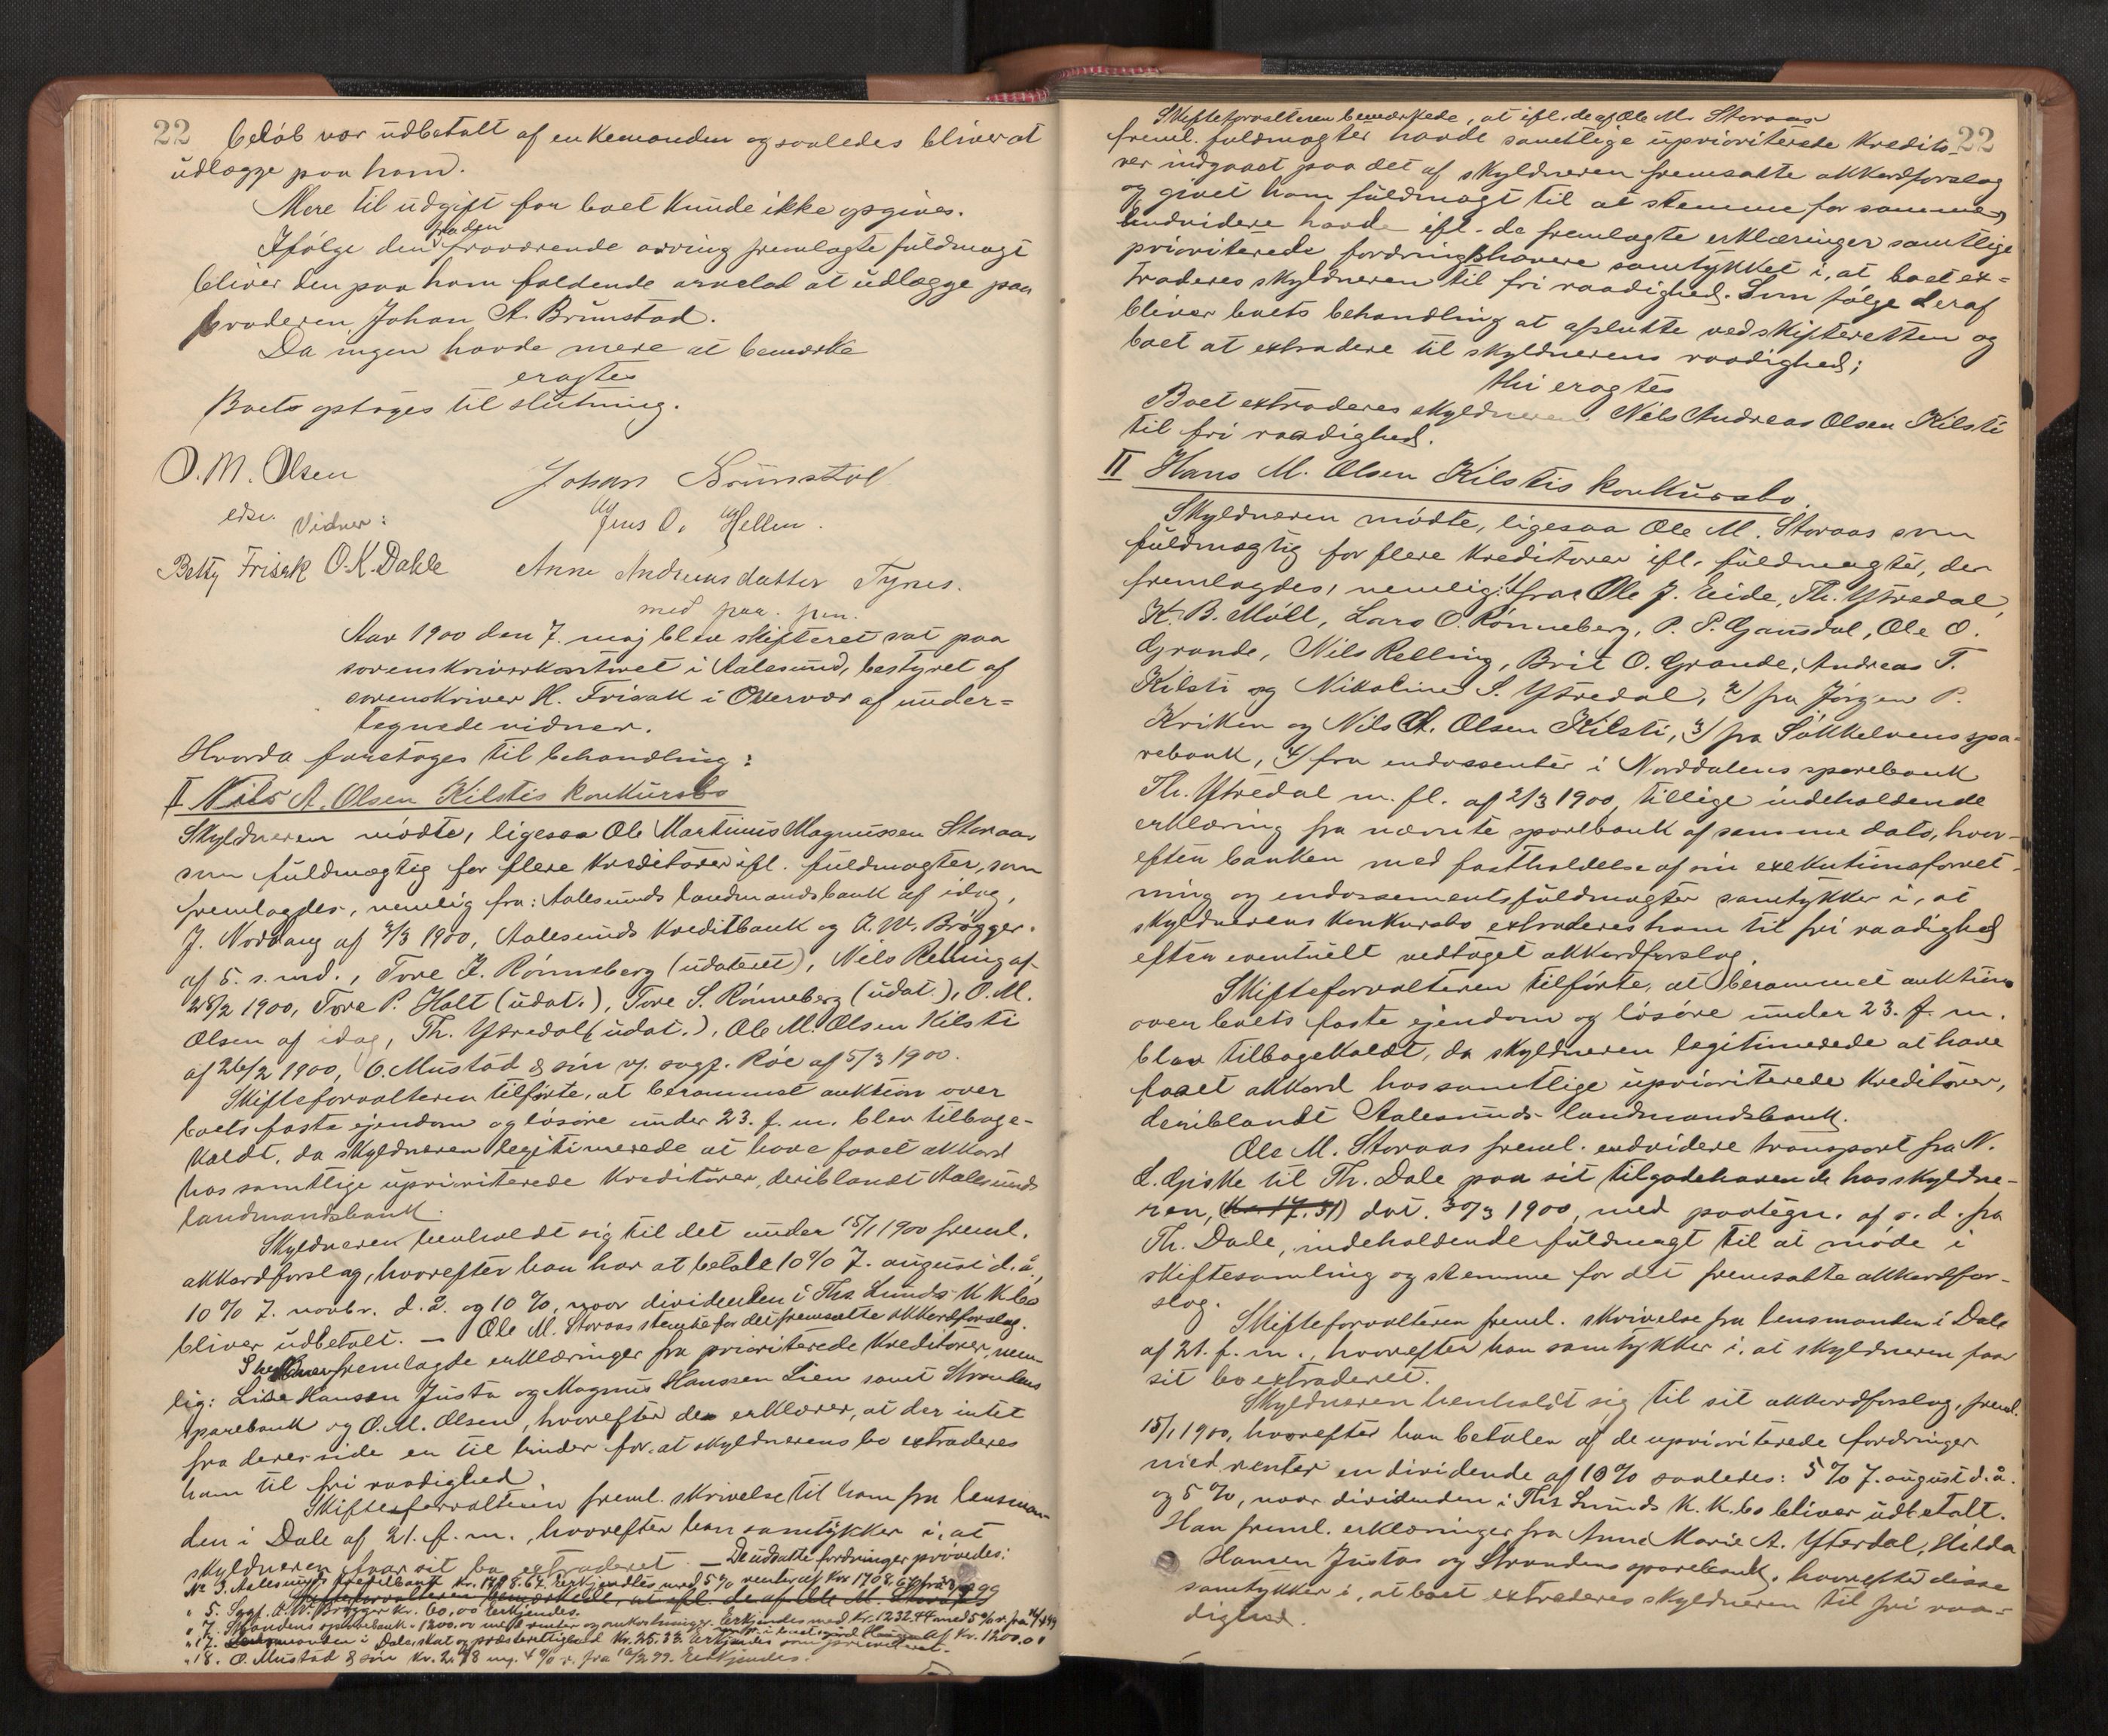 22
beløb var udbetalt af enkemanden og saaledes bliver at
udlægge paa ham.
Mere til udgift for boet kunde ikke opgives.
Ifølge den fra den fraværende arving fremlagte fuldmagt
bliver den paa ham faldende arvelod at udlægge paa
broderen Johan A. Brunstad.
Da ingen havde mere at bemærke
eragtes
Boets optages til slutning.
O. M. Olsen
Johan Brunstad
Jens O. Hellen.
Vidner:
Betty Frisak O. K. Dahle
Anne Andreasdatter Tynes.
med paa. pen.
Aar 1900 den 7. maj blev skifteret sat paa
sorenskriverkontoret i Aalesund, bestyret af
sorenskriver H. Frisak i Overvær af under=
tegnede vidner.
Hvorda foretoges til behandling:
I Nils A. Olsen Kilstis konkursbo
Skyldneren mødte, ligesaa Ole Martinus Magnussen Storaas
som fuldmægtig for flere kreditorer ifl. fuldmagter, som
fremlagdes, nemlig fra: Aalesunds landmandsbank af idag,
J. Norvang af 3/3 1900, Aalesunds Kreditbank og A. W. Brøgger
af 5. s. md., Tore K. Rønneberg (udateret), Nils Relling af
28/2 1900, Tore P. Holt (udat.), Tore S. Rønneberg (udat.), O. M.
Olsen af idag, Th. Ytredal (udat.), Ole M. Olsen Kilsti
af 26/2 1900, O. Mustad & søn v/ sagf. Röe af 5/3 1900.
Skifteforvalteren tilførte, at berammet auktion over
boets faste ejendom og løsøre under 23. f. m. blev tilbage-
kaldt, da skyldneren legitimerede at have faaet akkord
hos samtlige uprioriterede kreditorer, deriblandt Aalesunds
landmandsbank.
Skyldneren henholdt sig til det under 15/1 1900 freml.
akkordforslag, hvorefter han har at betale 10% 7. august d. å.,
10% 7. novbr. d. å. og 10%, naar dividenden i Ths Lunds KK bo
bliver udbetalt. — Ole M. Storaas stemte for det fremsatte akkordforslag.
Skyldneren fremlagde erklæringer fra prioriterede kreditorer, nem-
lig: Line Hansen Justa og Magnus Hanssen Lien samt Strandens
sparebank og O. M. Olsen, hvorefter de erklærer, at der intet
fra deres side er til hinder for, at skyldnerens bo extraderes
ham til fri raadighed
Skifteforvalteren freml. skrivelse til ham fra lensman-
den i Dale af 21. f. m., hvorefter han samtykker i, at
skyldneren faar sit bo extraderet. — De udsatte fordringer prøvedes:
No 3. Aalesunds Kreditbank kr. 1718.67. Erkjendtes med 5% renter af kr. 1708.67 fra
Skifteforvalteren bemærkede, at ifl. de af Ole M. Storaas
" 5. Sagf. A. W. Brøgger kr. 60,00 Erkjendes.
" 7. Strandens sparebank " 1200.00 med renter og omkostninger. Erkjendes med kr. 1232.44 med 5% r. fra
af kr. 1200.00
" 17. Lensmanden i Dale, skat og præsterettighed kr. 25.33. Erkjendes som prioriteret.
" 18. O. Mustad & søn kr. 2 98 m. 4% r. fra 12/2 99. Erkjendes.
22
Skifteforvalteren bemærkede, at ifl. de af Ole M. Storaas
freml. fuldmagter havde samtlige uprioriterede kredito-
rer indgaaet paa det af skyldneren fremsatte akkordforslag
og givet ham fuldmagt til at stemme for samme,
endvidere havde ifl. de fremlagte erklæringer samtlige
prioriterede fordringshavere samtykket i, at boet ex=
traderes skyldneren til fri raadighed. Som følge deraf
bliver boets behandling at afslutte ved skifteretten og
boet at extradere til skyldnerens raadighed;
thi eragtes
Boet extraderes skyldneren Nils Andreas Olsen Kilsti
til fri raadighed.
II Hans M. Olsen Kilstis konkursbo.
Skyldneren mødte, ligesaa Ole M. Storaas som
fuldmægtig for flere kreditorer ifl. fuldmagter, der
fremlagdes, nemlig: 1/ fra Ole J. Eide, Th. Ytredal,
K. B. Møll, Lars O. Rønneberg, P. P. Gausdal, Ole O.
Grande, Nils Relling, Brit O. Grande, Andreas T.
Kilsti og Nikoline S. Ytredal, 2/ fra Jørgen P.
Kriken og Nils A. Olsen Kilsti, 3/ fra Søkkelvens spa-
rebank, 4/ fra endossenter i Norddalens sparebank
Th. Ytredal m. fl. af 2/3 1900, tillige indeholdende
erklæring fra nævnte sparebank af samme dato, hvor-
efter banken med fastholdelse af sin exekutionsforret-
ning og endossementsfuldmagter samtykker i, at
skyldnerens konkursbo extraderes ham til fri raadighed
efter eventuelt vedtaget akkordforslag.
Skifteforvalteren tilførte, at berammet auktion
over boets faste ejendom og løsøre under 23. f. m.
blev tilbagekaldt, da skyldneren legitimerede at have
faaet akkord hos samtlige uprioriterede kreditorer,
deriblandt Aalesunds landmandsbank.
Ole M. Storaas freml. endvidere transport fra N.
L. Giske til Th. Dale paa sit tilgodehavende hos skyldne-
ren, (kr. 17.51) dat. 30/3 1900, med paategn. af s. d. fra
Th. Dale, indeholdende fuldmagt til at møde i
skiftesamling og stemme for det fremsatte akkordfor-
slag.
Skifteforvalteren freml. skrivelse fra lensmanden i Dale
af 21. f. m., hvorefter han samtykker i, at skyldneren faar
sit bo extraderet.
Skyldneren henholdt sig til sit akkordforslag, freml.
15/1 1900, hvorefter han betaler af de uprioriterede fordringer
med renter en dividende af 10% saaledes: 5% 7. august d. å.
og 5%, naar dividenden i Ths Lunds K. K. bo bliver udbetalt.
Han freml. erklæringer fra Anne Marie A. Ytterdal, Hilda
Hansen Justas og Strandens sparebank, hvorefter disse
samtykker i, at boet extraderes skyldneren til fri raa-
dighed.